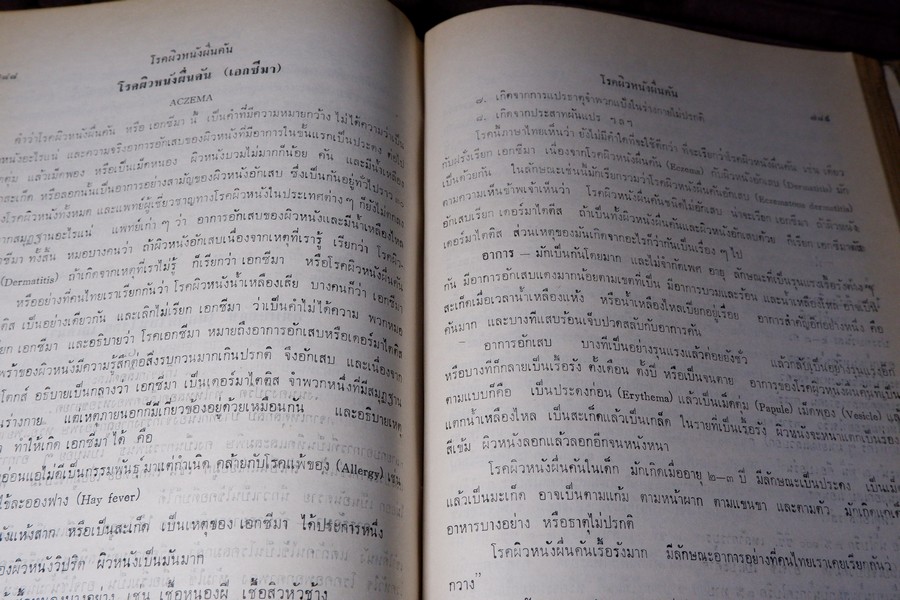 ๘๘๘
โรคผิวหนังผื่นคัน
โรคผิวหนังผื่นคัน (เอกซีมา)
ACZEMA
คำว่าโรคผิวหนังผื่นคัน หรือ เอกซีมา นี้ เป็นคำที่มีความหมายกว้าง ไม่ได้ความว่าเป็น
อะไรแน่ และความจริงอาการอักเสบของผิวหนังที่มีอาการในขั้นแรกเป็นประดง ต่อไป
แล้วเม็ดพอง หรือเป็นเม็ดหนอง ผิวหนังบวมไม่มากก็น้อย คัน และมีน้ำเหลือง
สะเก็ด หรือลอกนั้นเป็นอาการอย่างสามัญของผิวหนังอักเสบ ซึ่งเป็นกันอยู่ทั่วไปราว
โรคผิวหนังทั้งหมด และแพทย์ผู้เชี่ยวชาญทางโรคผิวหนังในประเทศต่าง ๆ ก็ยังไม่ตกลง
จากสมุฏฐานอะไรแน่ แพทย์เก่า ๆ ว่า อาการอักเสบของผิวหนังและมีน้ำเหลืองไหล
ซีมา ทั้งสิ้น หมอบางคนว่า ถ้าผิวหนังอักเสบเนื่องจากเหตุที่เรารู้ เรียกว่า โรคผิว-
(Dermatitis) ถ้าเกิดจากเหตุที่เราไม่รู้ ก็เรียกว่า เอกซีมา หรือโรคผิวหนังผื่นคัน
หรืออย่างที่คนไทยเราเรียกกันว่า โรคผิวหนังน้ำเหลืองเสีย บางคนก็ว่า เอกซีมา
ติส เป็นอย่างเดียวกัน และเลิกไม่เรียก เอกซีมา ว่าเป็นคำไม่ได้ความ พวกหมอ
เอกซีมา และอธิบายว่า โรคเอกซีมา หมายถึงอาการอักเสบหรือเดอร์มาไตติส
เพราะของผิวหนังมีความรู้สึกต่อสิ่งรบกวนมากเกินปรกติ จึงอักเสบ และเนื่องจาก
โดกส์ อธิบายเป็นกลางว่า เอกซีมา เป็นเดอร์มาไตติส จำพวกหนึ่งที่มีสมุฏฐาน
ร่างกาย แต่เหตุภายนอกก็มีเกี่ยวข้องอยู่ด้วยเหมือนกัน และอธิบายเหตุ
ทำให้เกิด เอกซีมา ได้ คือ
อ่อนแอไม่ดีเป็นกรรมพันธุ์ มาแต่กำเนิด คล้ายกับโรคแพ้ของ (Allergy) เช่น
ไข้ละอองฟาง (Hay fever)
แห้งสาก หรือเป็นสะเก็ด เป็นเหตุของ เอกซีมา ได้ประการหนึ่ง
ของผิวหนังวิปริต ผิวหนังเป็นมันมาก
หนองบางอย่าง เช่น เชื้อหนองฝี เชื้อสิวหัวช้าง
โรคผิวหนังผื่นคัน
๘๘๕
๗. เกิดจากการแปรธาตุจำพวกแป้งในร่างกายไม่ปรกติ
๘. เกิดจากประสาทผันแปร ฯลฯ
โรคนี้ภาษาไทยเห็นว่า ยังไม่มีคำใดที่จะใช้ดีกว่า ที่จะเรียกว่าโรคผิวหนังผื่นคัน
กับฝรั่งเรียก เอกซีมา เนื่องจากโรคผิวหนังผื่นคัน (Eczema) กับผิวหนังอักเสบ (Dermatitis) มัก
เป็นด้วยกัน ในลักษณะเช่นนี้มักเรียกรวมว่าโรคผิวหนังผื่นคันอักเสบ (Eczematous dermatitis)
ตามความเห็นข้าพเจ้าเห็นว่า โรคผิวหนังผื่นคันชนิดไม่อักเสบ น่าจะเรียก เอกซีมา ถ้าผิวหนัง
อักเสบเรียก เดอร์มาไตติส ถ้าเป็นทั้งผิวหนังผื่นคันและผิวหนังอักเสบด้วย ก็เรียก เอกซีมาตัส
เดอร์มาไตติส ส่วนเหตุของมันเกิดจากอะไรก็ว่ากันเป็นเรื่อง ๆ ไป
อาการ — มักเป็นกันโดยมาก และไม่จำกัดเพศ อายุ ลักษณะที่เป็นรุนแรงเรื้อรังต่าง ๆ
กัน มีอาการอักเสบแดงมากน้อยตามเขตที่เป็น มีอาการบวมและร้อน และน้ำเหลืองไหล อาจเป็น
สะเก็ดเมื่อเวลาน้ำเหลืองแห้ง หรือน้ำเหลืองไหลเยิ้มอยู่เรื่อย อาการสำคัญอีกอย่างหนึ่ง คือ
คันมาก และบางทีแสบร้อนเจ็บปวดสลับกับอาการคัน
อาการอักเสบ บางทีเป็นอย่างรุนแรงแล้วค่อยยังชั่ว แล้วกลับเป็นอย่างรุนแรงอีก
หรือบางทีก็กลายเป็นเรื้อรัง ตั้งเดือน ตั้งปี หรือเป็นจนตาย อาการของโรคผิวหนังผื่นคันที่เป็น
ตามแบบก็คือ เป็นประดงก่อน (Erythema) แล้วเป็นเม็ดตุ่ม (Papule) เม็ดพอง (Vesicle) แล้ว
แตกน้ำเหลืองไหล เป็นสะเก็ดแล้วเป็นเกล็ด ในรายที่เป็นเรื้อรัง ผิวหนังจะหนาแตกเป็นร่อง
สีเข้ม ผิวหนังลอกแล้วลอกอีกจนหนังหนา
โรคผิวหนังผื่นคันในเด็ก มักเกิดเมื่ออายุ ๒—๓ ปี มีลักษณะเป็นประดง เป็นเม็ด
แล้วเป็นสะเก็ด อาจเป็นตามแก้ม ตามหน้าผาก ตามแขนขา และตามตัว มักเกิดแก่เด็ก
อาหารบางอย่าง หรือธาตุไม่ปรกติ
โรคผิวหนังผื่นคันเรื้อรังมาก มีลักษณะอาการอย่างที่คนไทยเราเคยเรียกกันว่า
กวาง"